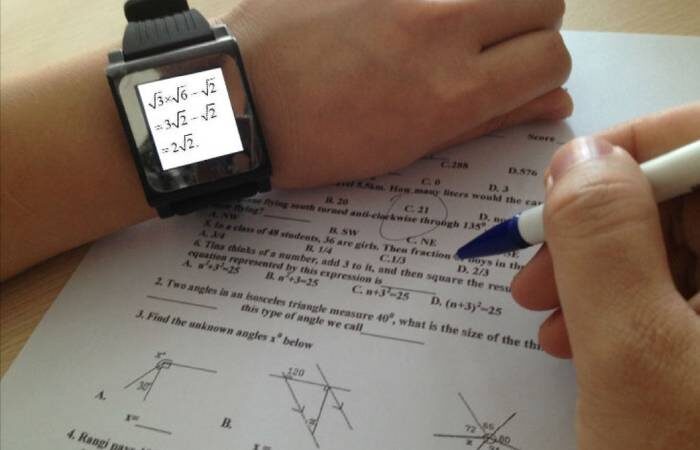 √3×√6 − √2
= 3√2 − √2
= 2√2.
Score
C.288 D.576
C. 0 D. 3
5.5km. How many liters would the car
B. 20 C. 21
flying south turned anti-clockwise through 135°
flying?
A. NW B. SW C. NE
5. In a class of 48 students, 36 are girls. Then fraction of boys in the
A. 3/4 B. 1/4 C.1/3 D. 2/3
6. Tina thinks of a number, add 3 to it, and then square the resu
equation represented by this expression is
A. n²+3²=25 B. n²+3=25 C. n+3²=25 D. (n+3)²=25
2. Two angles in an isosceles triangle measure 40⁰, what is the size of the thi
this type of angle we call
3. Find the unknown angles x⁰ below
x° 30°
A.
x=
120 x
B.
x =
72 66 80 x
4. Rangi pays